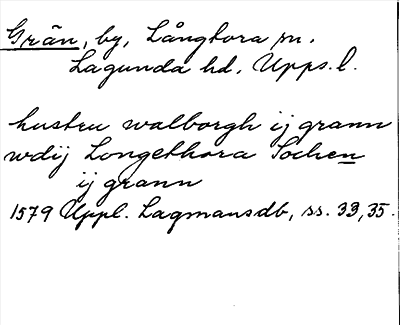 Grän, by, Långtora sn.
Lagunda hd. Upps. l.
hustru walborgh ij grann
wdij Longethora Sochen
ij grann
1579 Uppl. Lagmansdb, ss. 33, 35.